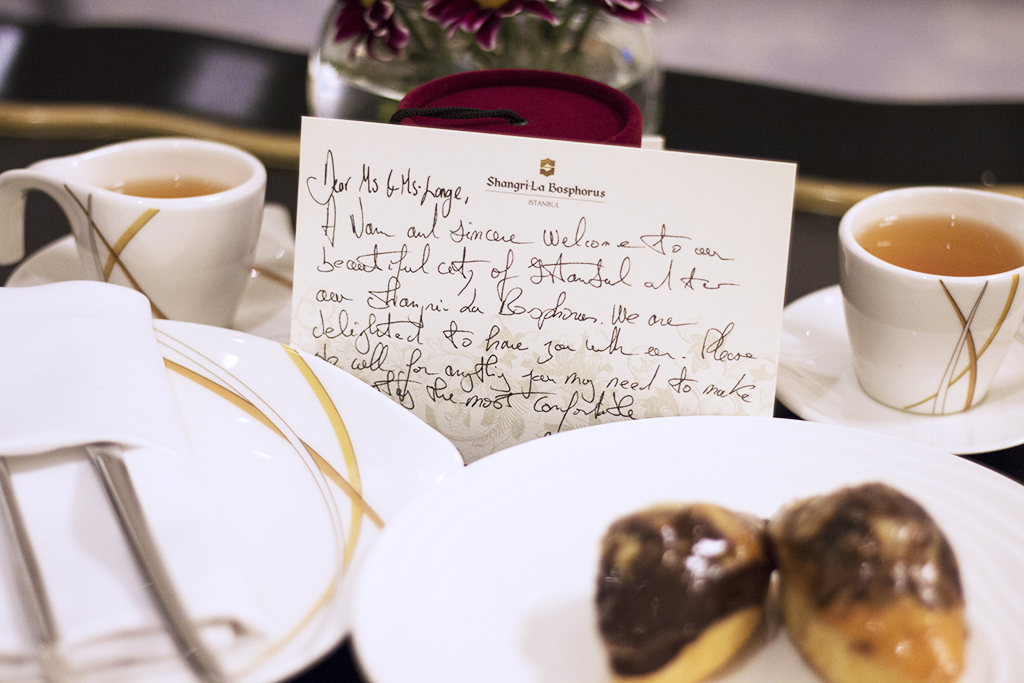 Shangri-La Bosphorus
ISTANBUL
Dear Ms & Ms. Longe,
A Warm and sincere Welcome to our
beautiful city of Istanbul at the
our Shangri-La Bosphorus. We are
delighted to have you with us. Please
do call for anything you may need to make
stay the most comfortable